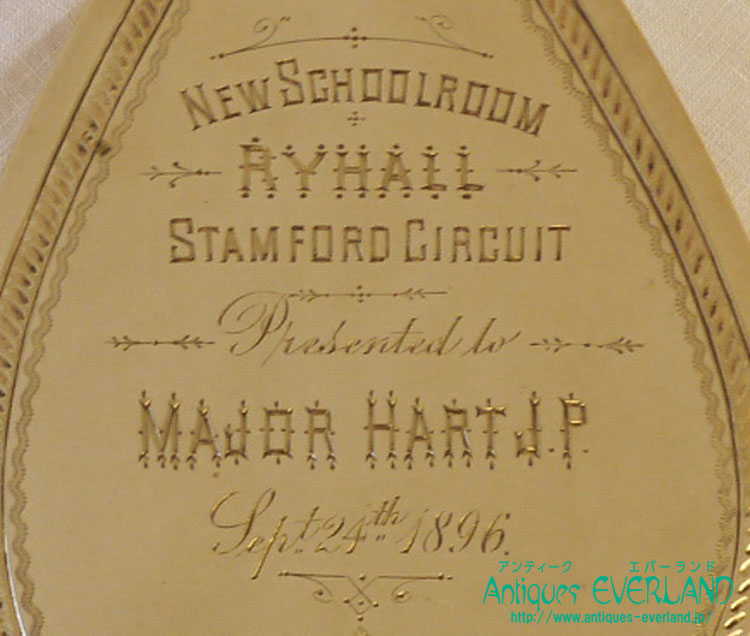 NEW SCHOOLROOM
RYHALL
STAMFORD CIRCUIT
Presented to
MAJOR HART J.P.
Sept. 24th 1896.
アンティーク エバーランド
Antiques EVERLAND
http://www.antiques-everland.jp/